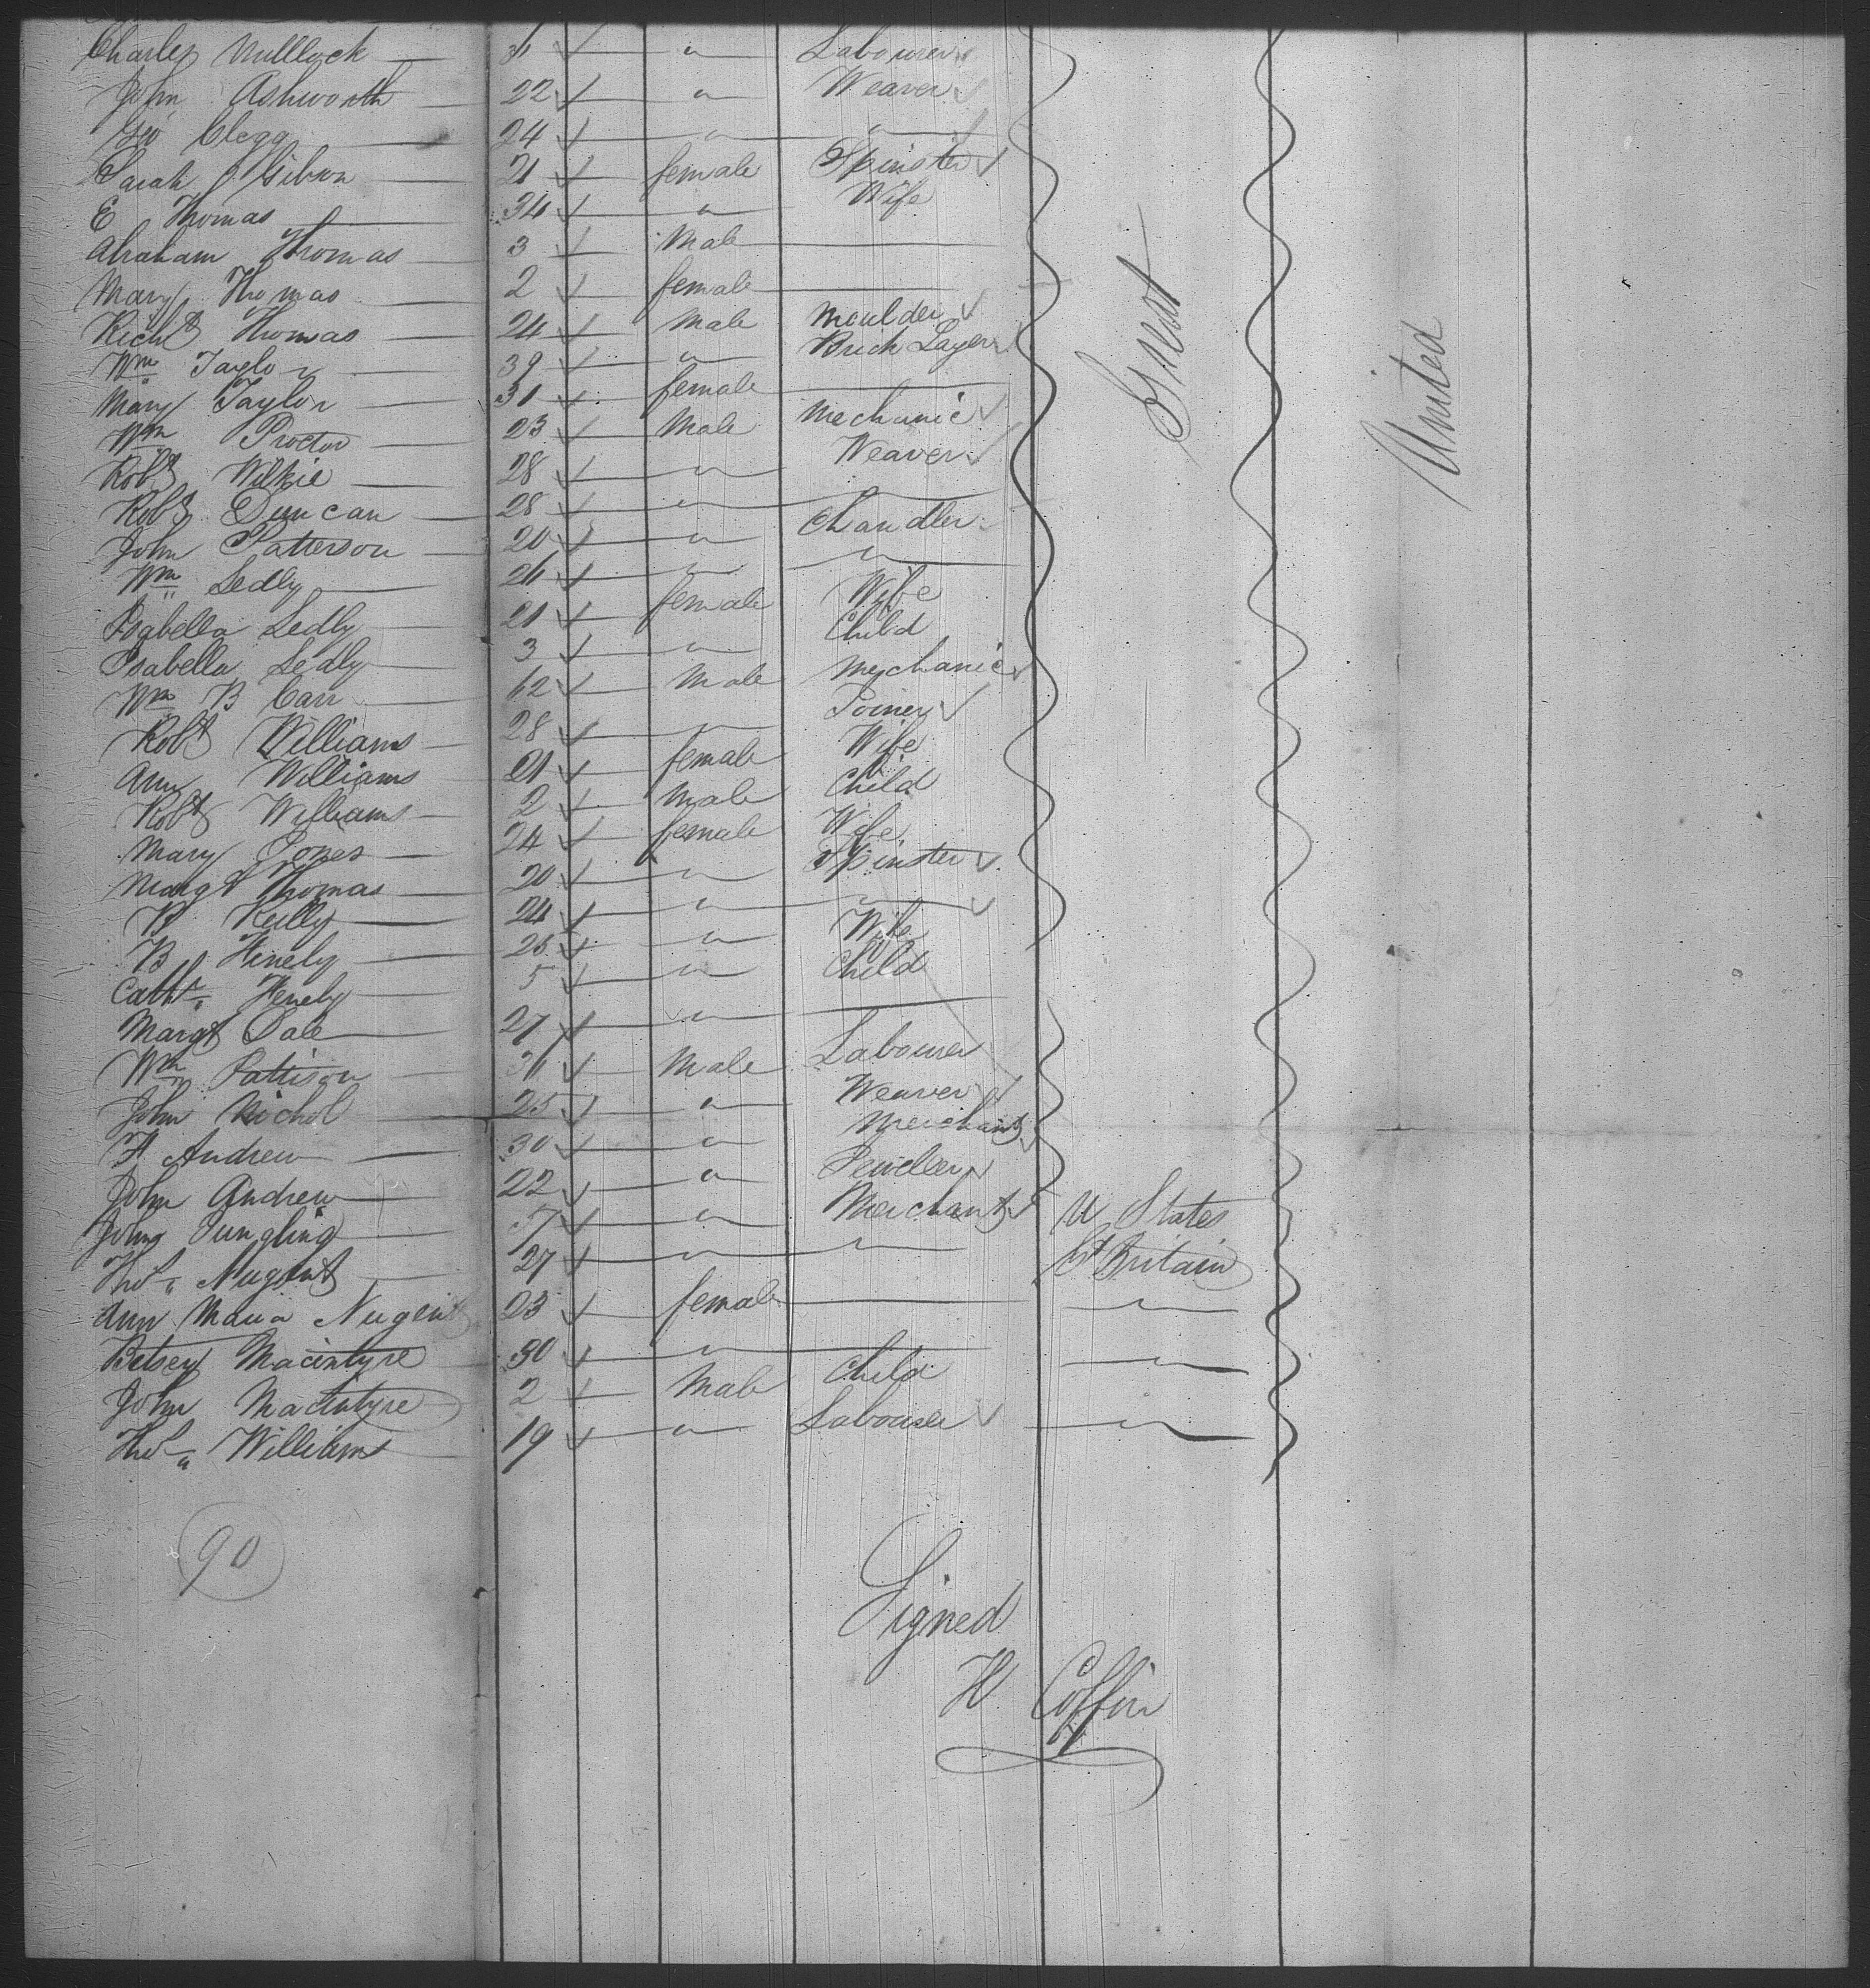 Charles Mullock 31 " Labourer
John Ashworth 22 " Weaver
Geo Clegg 24 " "
Sarah Gibson 21 female Spinster
E Thomas 34 " Wife
Abraham Thomas 3 Male
Mary Thomas 2 female
Richd Thomas 24 Male Moulder
Wm Taylor 39 " Brick Layer
Mary Taylor 31 female
Wm Proctor 23 Male Mechanic
Robt Wilkie 28 " Weaver
Robt Duncan 28 " "
John Patterson 20 " Chandler
Wm Sedly 26 " "
Isabella Sedly 21 female Wife
Isabella Sedly 3 " Child
Wm B Carr 62 Male Mechanic
Robt Williams 28 " Joiner
Ann Williams 21 female Wife
Robt Williams 2 Male Child
Mary Jones 24 female Wife
Margt Thomas 20 " Spinster
B Kelly 24 " "
B Henely 25 " Wife
Cathe Henely 5 " Child
Margt Dale 27 "
Wm Pattison 31 Male Labourer
John Nichol 25 " Weaver
F Andrew 30 " Merchant
John Andrew 22 " Jeweller
John Jungling 37 " Merchant U States
Thos Nugent 27 " " Gt Britain
Ann Maria Nugent 23 female "
Betsey Macintyre 30 " "
John Macintyre 2 Male Child
Thos Williams 19 " Labourer "
Great
United
90
Signed
H Coffin